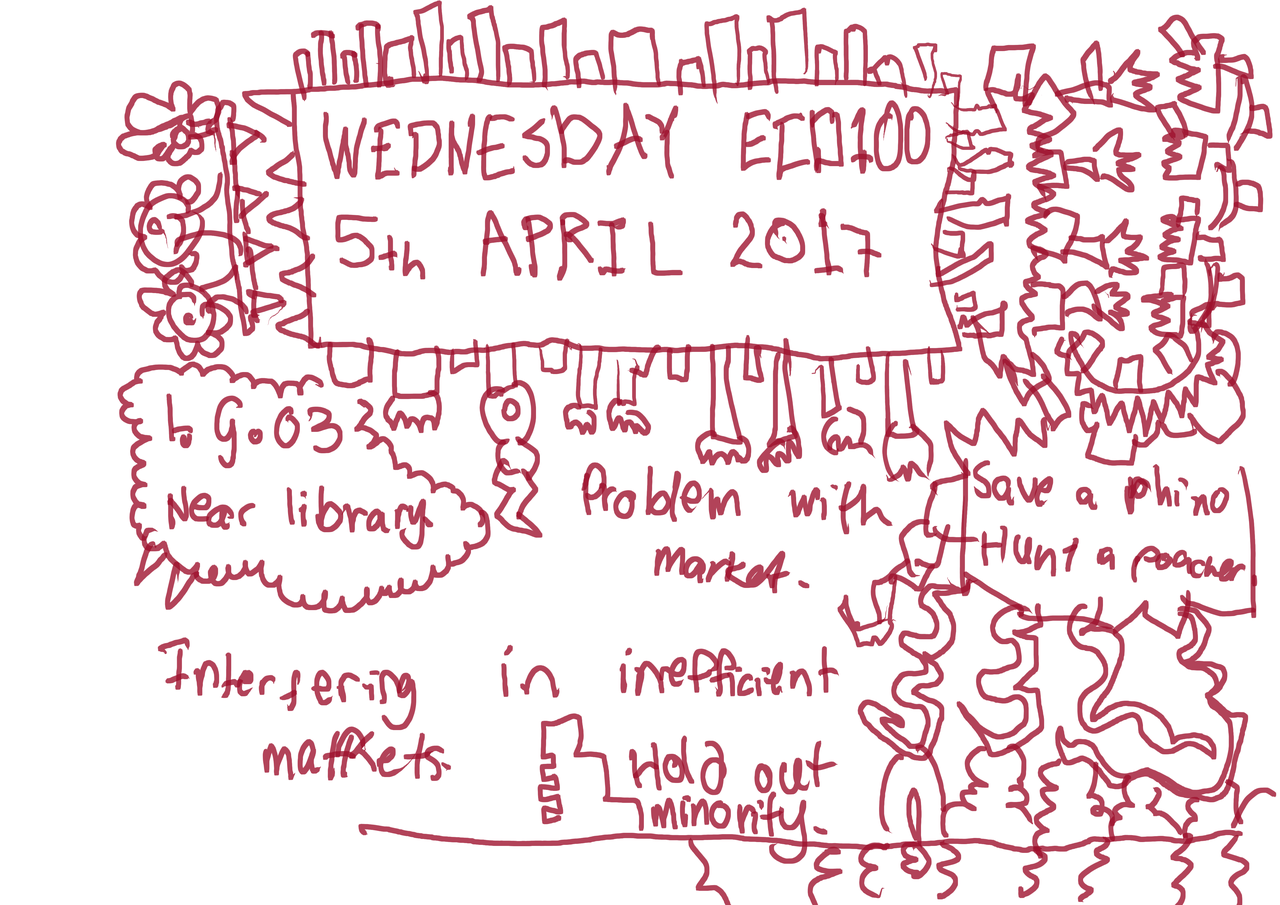 WEDNESDAY ECO100
5th APRIL 2017
L G.03
Near library
Problem with
market.
Save a rhino
Hunt a poacher
Interfering in inefficient
markets.
Hold out
minority.